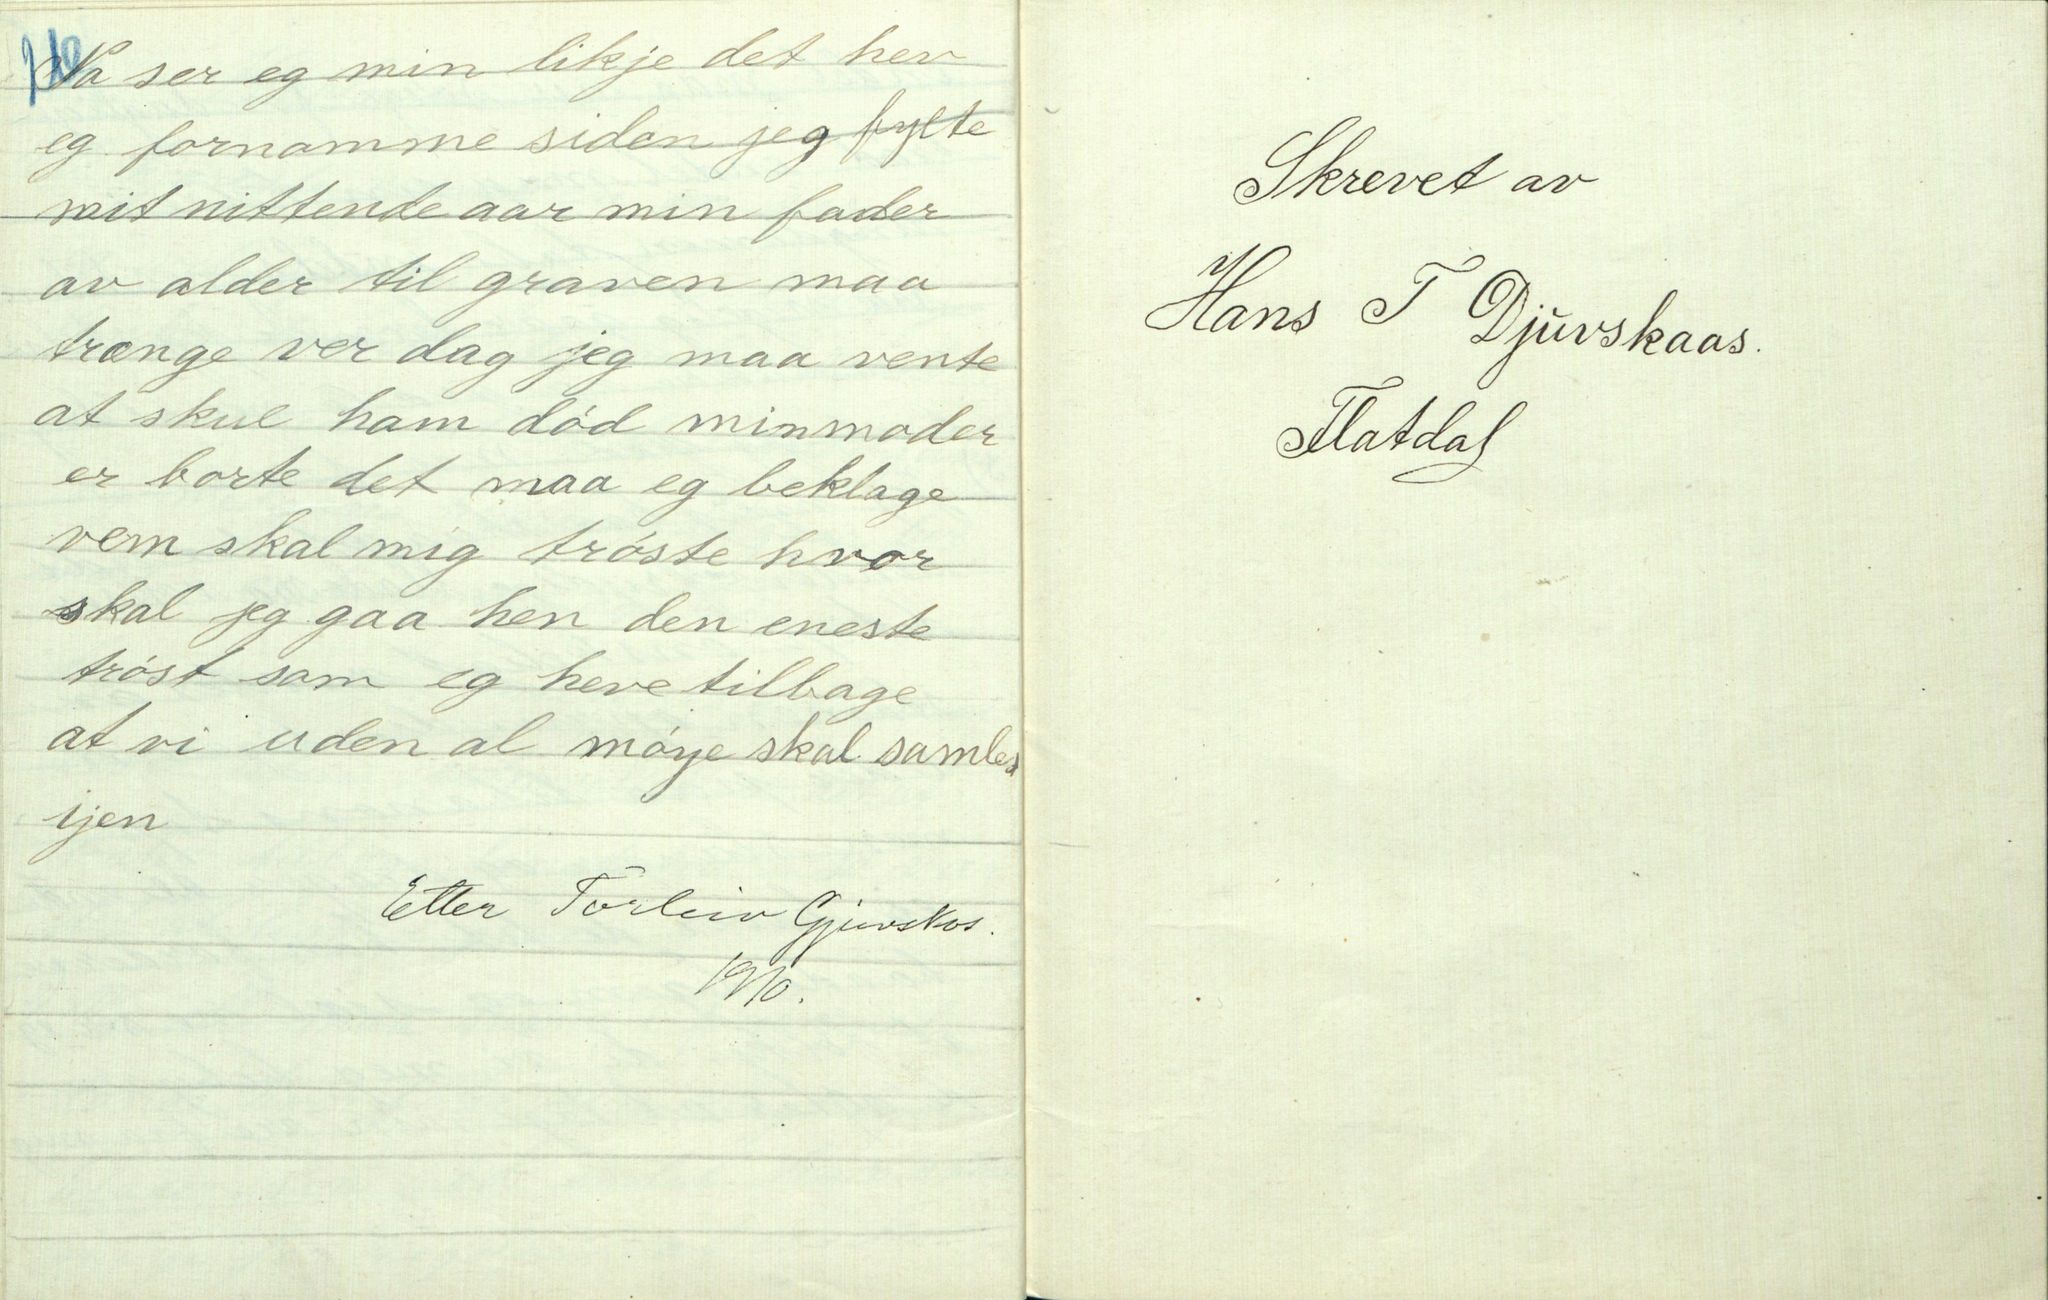 Na ser eg min likje det hev
eg fornomme siden jeg fylte
mit nittende aar min fader
av alder til graven maa
trænge ver dag jeg maa vente
at skue ham død minmoder
er borte det maa eg beklage
vem skal mig trøste hvor
skal jeg gaa hen den eneste
trøst som eg heve tilbage
at vi uden al møye skal samles
ijen
Etter Torleiv Gjuvskos.
1910.
Skrevet av
Hans T Djuvskaas.
Flatdal